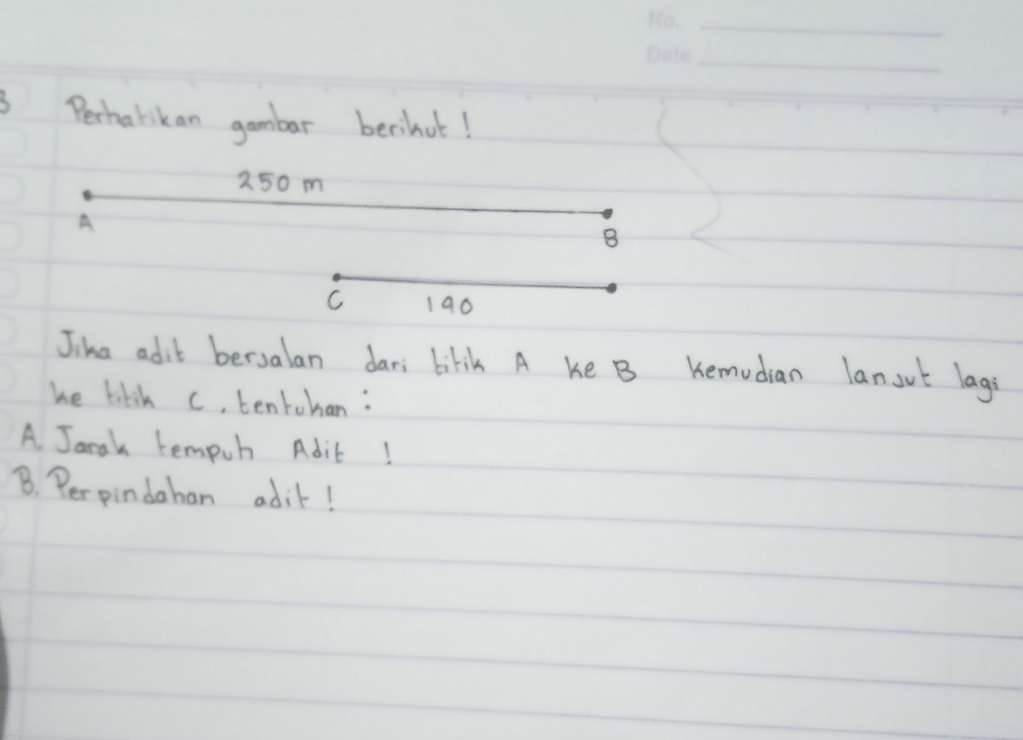 No.
Date
3 Perhatikan gambar berikut!
250 m
A
B
C
190
Jika adit berjalan dari titik A ke B kemudian lanjut lagi
ke titik C, tentukan :
A. Jarak tempuh Adit !
B. Perpindahan adit !